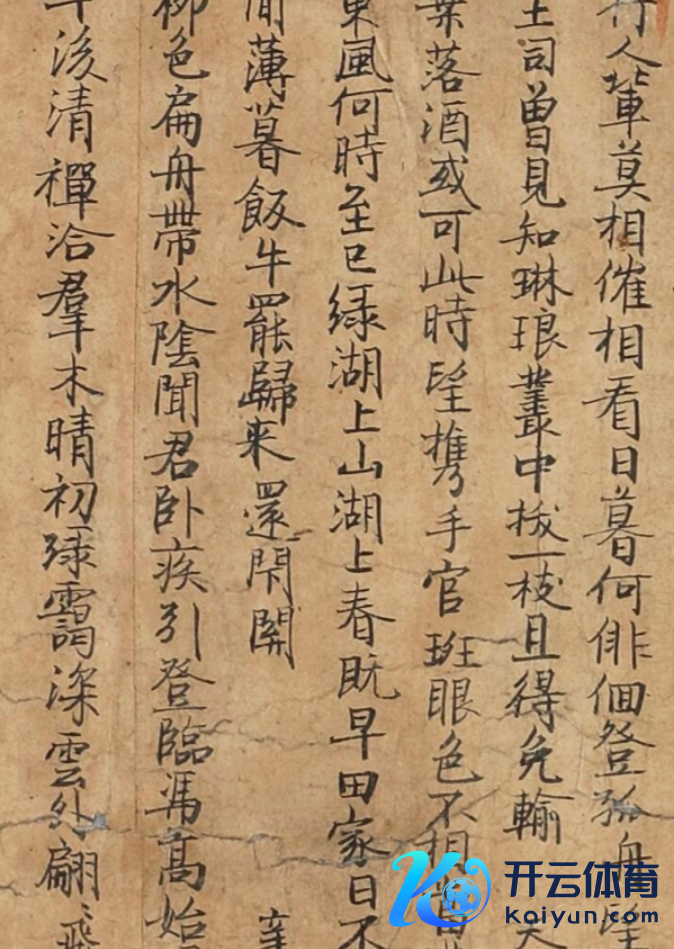 行人輩莫相催相看日暮何俳佪登孤舟望
土司曾見知琳琅叢中拔一枝且得免輸
葉落酒或可此時望携手官班眼色不相當
東風何時至已綠湖上山湖上春既早田家日不
間薄暮飯牛罷歸来還閇關
柳色扁舟帶水陰聞君卧疾引登臨馮高始
年後清禪洽羣木晴初綠靄深雲外翩〻飛
开云体育
Kaiyun.com